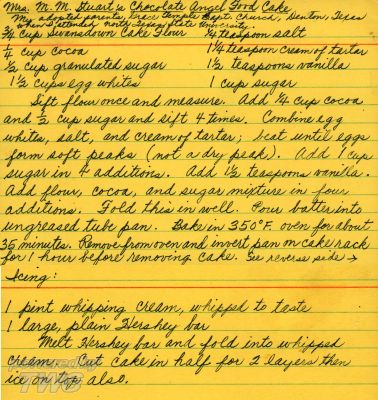 Mrs. M. M. Stuart's Chocolate Angel Food Cake
My adopted parents, Grace Temple Bapt. Church, Denton, Texas
when I attended North Texas State University.
3/4 cup Swansdown Cake Flour 1/4 teaspoon salt
1/4 cup cocoa 1 1/4 teaspoon cream of tartar
1/2 cup granulated sugar 1 1/2 teaspoons vanilla
1 1/2 cups egg whites 1 cup sugar
Sift flour once and measure. Add 1/4 cup cocoa
and 1/2 cup sugar and sift 4 times. Combine egg
whites, salt, and cream of tartar; beat until eggs
form soft peaks (not a dry peak). Add 1 cup
sugar in 4 additions. Add 1 1/2 teaspoons vanilla.
Add flour, cocoa, and sugar mixture in four
additions. Fold this in well. Pour batter into
ungreased tube pan. Bake in 350°F. oven for about
35 minutes. Remove from oven and invert pan on cake rack
for 1 hour before removing cake. See reverse side →
Icing:
1 pint whipping cream, whipped to taste
1 large, plain Hershey bar
Melt Hershey bar and fold into whipped
cream. Cut cake in half for 2 layers then
ice on top also.